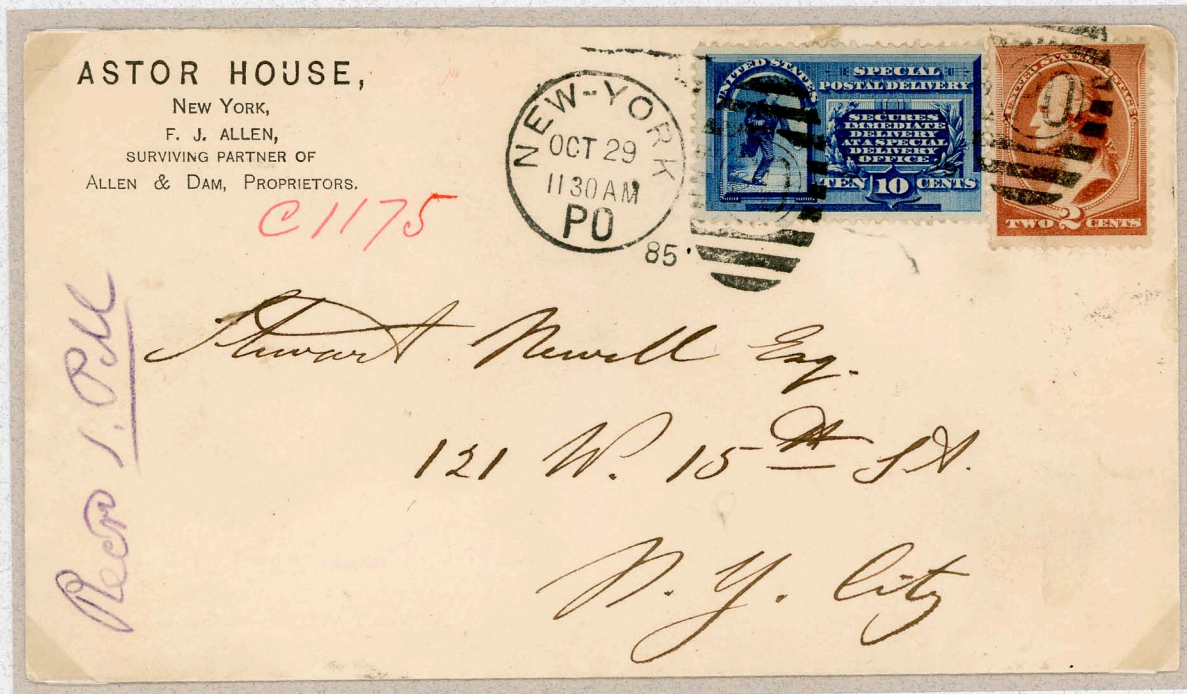 ASTOR HOUSE,
NEW YORK,
F. J. ALLEN,
SURVIVING PARTNER OF
ALLEN & DAM, PROPRIETORS.
C 1175
NEW-YORK
OCT 29
11 30 AM
PO
85
UNITED STATES
SPECIAL
POSTAL DELIVERY
SECURES
IMMEDIATE
DELIVERY
AT A SPECIAL
DELIVERY
OFFICE
TEN 10 CENTS
UNITED STATES POSTAGE
TWO 2 CENTS
Stewart Newell Esq.
121 W. 15th St.
N. Y. City